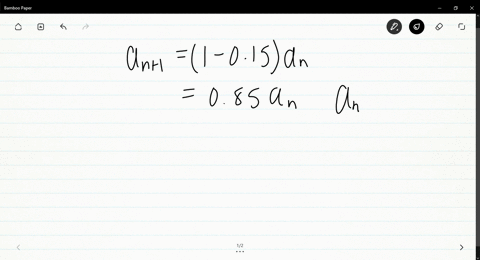 Bamboo Paper
aₙ₊₁ = (1 - 0.15)aₙ
= 0.85 aₙ aₙ
1/2